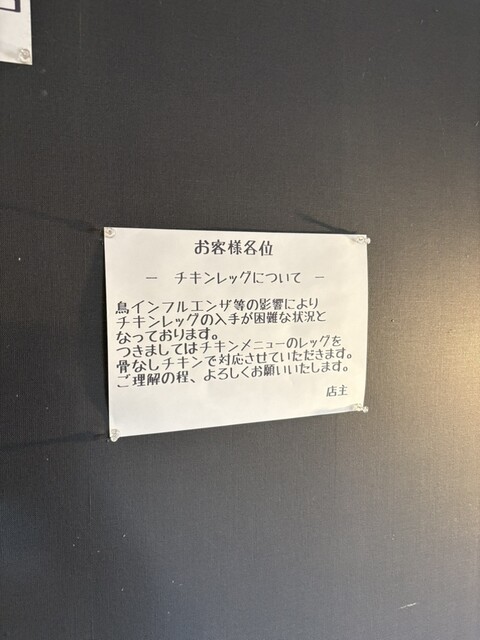 お客様各位
－ チキンレッグについて －
鳥インフルエンザ等の影響により
チキンレッグの入手が困難な状況と
なっております。
つきましてはチキンメニューのレッグを
骨なしチキンで対応させていただきます。
ご理解の程、よろしくお願いいたします。
店主